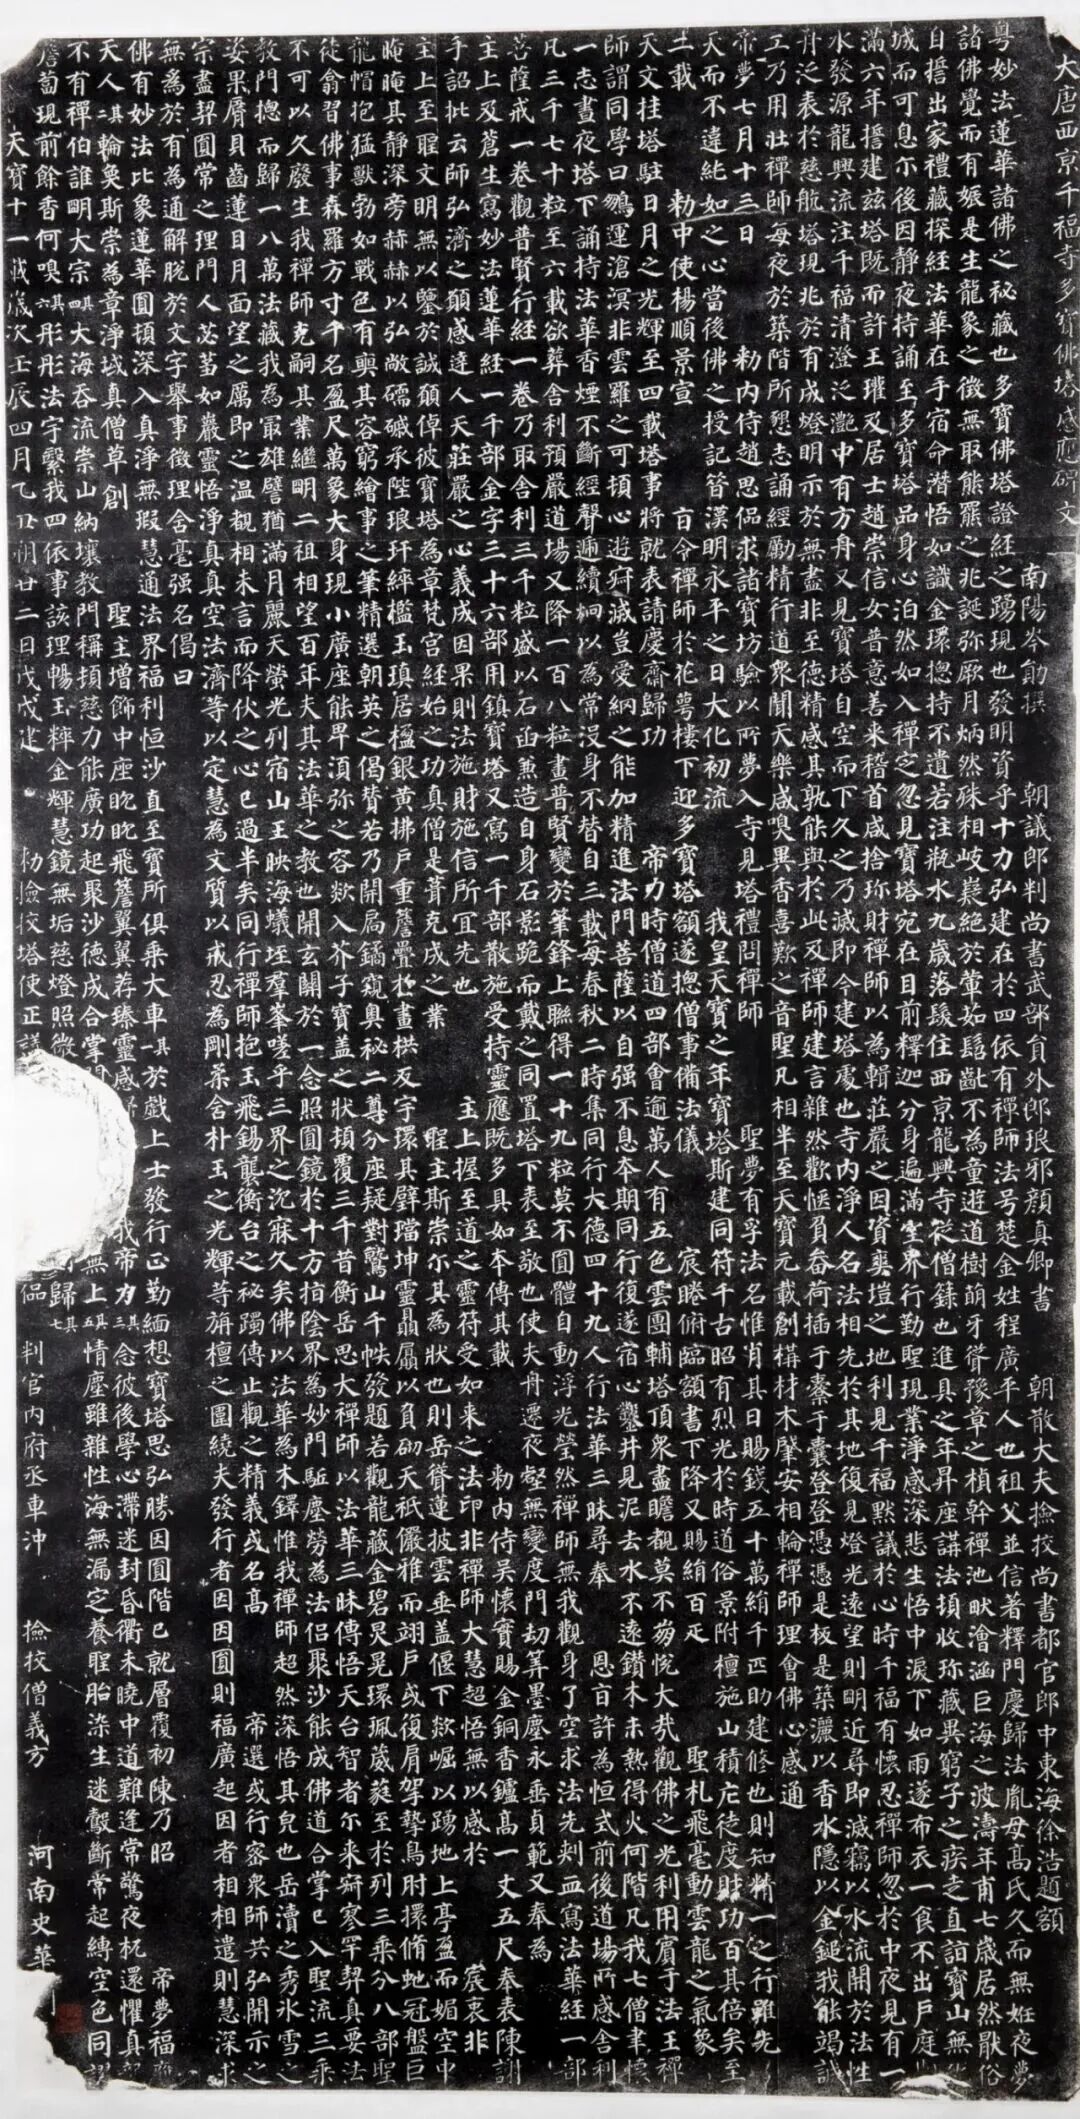 大唐西京千福寺多寶佛塔感應碑文 南陽岑勛撰 朝議郎判尚書武部員外郎琅邪顏真卿書 朝散大夫撿挍尚書都官郎中東海徐浩題額
粵妙法蓮華諸佛之秘藏也多寶佛塔證經之踴現也發明資乎十力弘建在於四依有禪師法号楚金姓程廣平人也祖父並信著釋門慶歸法胤母高氏久而無妊夜夢
諸佛覺而有娠是生龍象之徵無取熊羆之兆誕弥厥月炳然殊相岐嶷絕於葷茹髫齔不為童遊道樹萌牙聳豫章之楨幹禪池畎澮涵巨海之波濤年甫七歲居然猒俗
自誓出家禮藏探經法華在手宿命潛悟如識金環捴持不遺若注瓶水九歲落髮住西京龍興寺從僧籙也進具之年昇座講法頓收珎藏異窮子之疾走直詣寶山無化
城而可息尒後因靜夜持誦至多寶塔品身心泊然如入禪定忽見寶塔宛在目前釋迦分身遍滿空界行勤聖現業淨感深悲生悟中淚下如雨遂布衣一食不出戶庭期
滿六年誓建茲塔既而許王瓘及居士趙崇信女普意善來稽首咸捨珎財禪師以為輯莊嚴之因資爽塏之地利見千福默議於心時千福有懷忍禪師忽於中夜見有一
水發源龍興流注千福清澄泛灩中有方舟又見寶塔自空而下久之乃滅即今建塔處也寺內淨人名法相先於其地復見燈光遠望則明近尋即滅竊以水流開於法性
舟泛表於慈航塔現兆於有成燈明示於無盡非至德精感其孰能與於此及禪師建言雜然歡愜負畚荷插于橐于囊登登憑憑是板是築灑以香水隱以金鎚我能竭誠
工乃用壯禪師每夜於築階所懇志誦經勵精行道眾聞天樂咸嗅異香喜歎之音聖凡相半至天寶元載創構材木肇安相輪禪師理會佛心感通
帝夢七月十三日 勑內侍趙思侃求諸寶坊驗以所夢入寺見塔禮問禪師 聖夢有孚法名惟肖其日賜錢五十萬絹千匹助建修也則知精一之行雖先
天而不違純如之心當後佛之授記昔漢明永平之日大化初流 我皇天寶之年寶塔斯建同符千古昭有烈光於時道俗景附檀施山積庀徒度財功百其倍矣至
二載 勑中使楊順景宣 旨令禪師於花萼樓下迎多寶塔額遂捴僧事備法儀 宸睠俯臨額書下降又賜絹百疋 聖札飛毫動雲龍之氣象
天文挂塔駐日月之光輝至四載塔事將就表請慶齋歸功 帝力時僧道四部會逾萬人有五色雲團輔塔頂眾盡瞻覩莫不崩悅大哉觀佛之光利用賓于法王禪
師謂同學曰鵬運滄溟非雲羅之可頓心遊寂滅豈愛網之能加精進法門菩薩以自强不息本期同行復遂宿心鑿井見泥去水不遠鑽木未熱得火何階凡我七僧聿懷
一志晝夜塔下誦持法華香煙不斷經聲遞續炯以為常沒身不替自三載每春秋二時集同行大德四十九人行法華三昧尋奉 恩旨許為恒式前後道場所感舍利
凡三千七十粒至六載欲葬舍利預嚴道場又降一百八粒畫普賢變於筆鋒上聯得一十九粒莫不圓體自動浮光瑩然禪師無我觀身了空求法先刺血寫法華經一部
菩薩戒一卷觀普賢行經一卷乃取舍利三千粒盛以石函兼造自身石影跪而戴之同置塔下表至敬也使夫舟遷夜壑無變度門劫筭墨塵永垂貞範又奉為
主上及蒼生寫妙法蓮華經一千部金字三十六部用鎮寶塔又寫一千部散施受持靈應既多具如本傳其載 勑內侍吳懷實賜金銅香鑪高一丈五尺奉表陳謝
手詔批云師弘濟之願感達人天莊嚴之心義成因果則法施財施信所宜先也 主上握至道之靈符受如來之法印非禪師大慧超悟無以感於 宸衷非
主上至聖文明無以鑒於誠願倬彼寶塔為章梵宮經始之功真僧是葺克成之業 聖主斯崇尒其為狀也則岳聳蓮披雲垂蓋偃下欻崛以踊地上亭盈而媚空中
晻晻其靜深旁赫赫以弘敞礝磩承陛琅玕綷檻玉瑱居楹銀黃拂戶重檐疊於畫栱反宇環其璧璫坤靈贔屭以負砌天祇儼雅而翊戶或復肩挐摯鳥肘擐脩虵冠盤巨
龍帽抱猛獸勃如戰色有奭其容窮繪事之筆精選朝英之偈贊若乃開扃鐍窺奧秘二尊分座疑對鷲山千帙發題若觀龍藏金碧炅晃環珮葳蕤至於列三乘分八部聖
徒翕習佛事森羅方寸千名盈尺萬象大身現小廣座能卑須弥之容欻入芥子寶蓋之狀頓覆三千昔衡岳思大禪師以法華三昧傳悟天台智者尒來寂寥罕契真要法
不可以久廢生我禪師克嗣其業繼明二祖相望百年夫其法華之教也開玄關於一念照圓鏡於十方指陰界為妙門駈塵勞為法侶聚沙能成佛道合掌已入聖流三乘
教門捴而歸一八萬法藏我為最雄譬猶滿月麗天螢光列宿山王映海蟻垤羣峯嗟乎三界之沉寐久矣佛以法華為木鐸惟我禪師超然深悟其皃也岳瀆之秀冰雪之
姿果脣貝齒蓮目月面望之厲即之溫覩相未言而降伏之心已過半矣同行禪師抱玉飛錫襲衡台之秘躅傳止觀之精義或名高 帝選或行密眾師共弘開示之
宗盡契圓常之理門人苾蒭如巖靈悟淨真真空法濟等以定慧為文質以戒忍為剛柔含朴玉之光輝等旃檀之圍繞夫發行者因因圓則福廣起因者相相遣則慧深求
無為於有為通解脫於文字舉事徵理含毫强名偈曰
佛有妙法比象蓮華圓頓深入真淨無瑕慧通法界福利恒沙直至寶所俱乘大車其一於戲上士發行正勤緬想寶塔思弘勝因圓階已就層覆初陳乃昭 帝夢福應
天人其二輪奐斯崇為章淨域真僧草創 聖主增飾中座眈眈飛檐翼翼荐臻靈感我帝力其三念彼後學心滯迷封昏衢未曉中道難逢常驚夜杌還懼真龍
不有禪伯誰明大宗其四大海吞流崇山納壤教門稱頓慈力能廣功起聚沙德成合掌無上其五情塵雖雜性海無漏定養聖胎染生迷鷇斷常起縛空色同謬
薝蔔現前餘香何嗅其六彤彤法宇繫我四依事該理暢玉粹金輝慧鏡無垢慈燈照微歸其七
天寶十一載歲次壬辰四月乙丑朔廿二日戊戌建 勑撿挍塔使正議侃 判官內府丞車沖 撿挍僧義方 河南史華